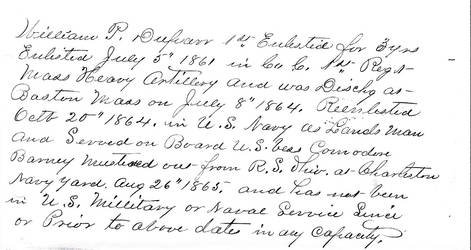 William P. Dufarr 1st Enlisted for 3 yrs
Enlisted July 5" 1861 in Co C. 1st Regt
Mass Heavy Artillery and was Dischg at
Boston Mass on July 8" 1864. Reenlested
Octb 20" 1864. in U.S. Navy as Lands Man
and Served on Board U.S. Ves Comodore
Barney Mustered out from R.S. Ohio. at Charleston
Navy yard. Aug 26" 1865, and has not been
in U.S. Millitary or Naval Service Since
or Prior to above dates in any Capacity.